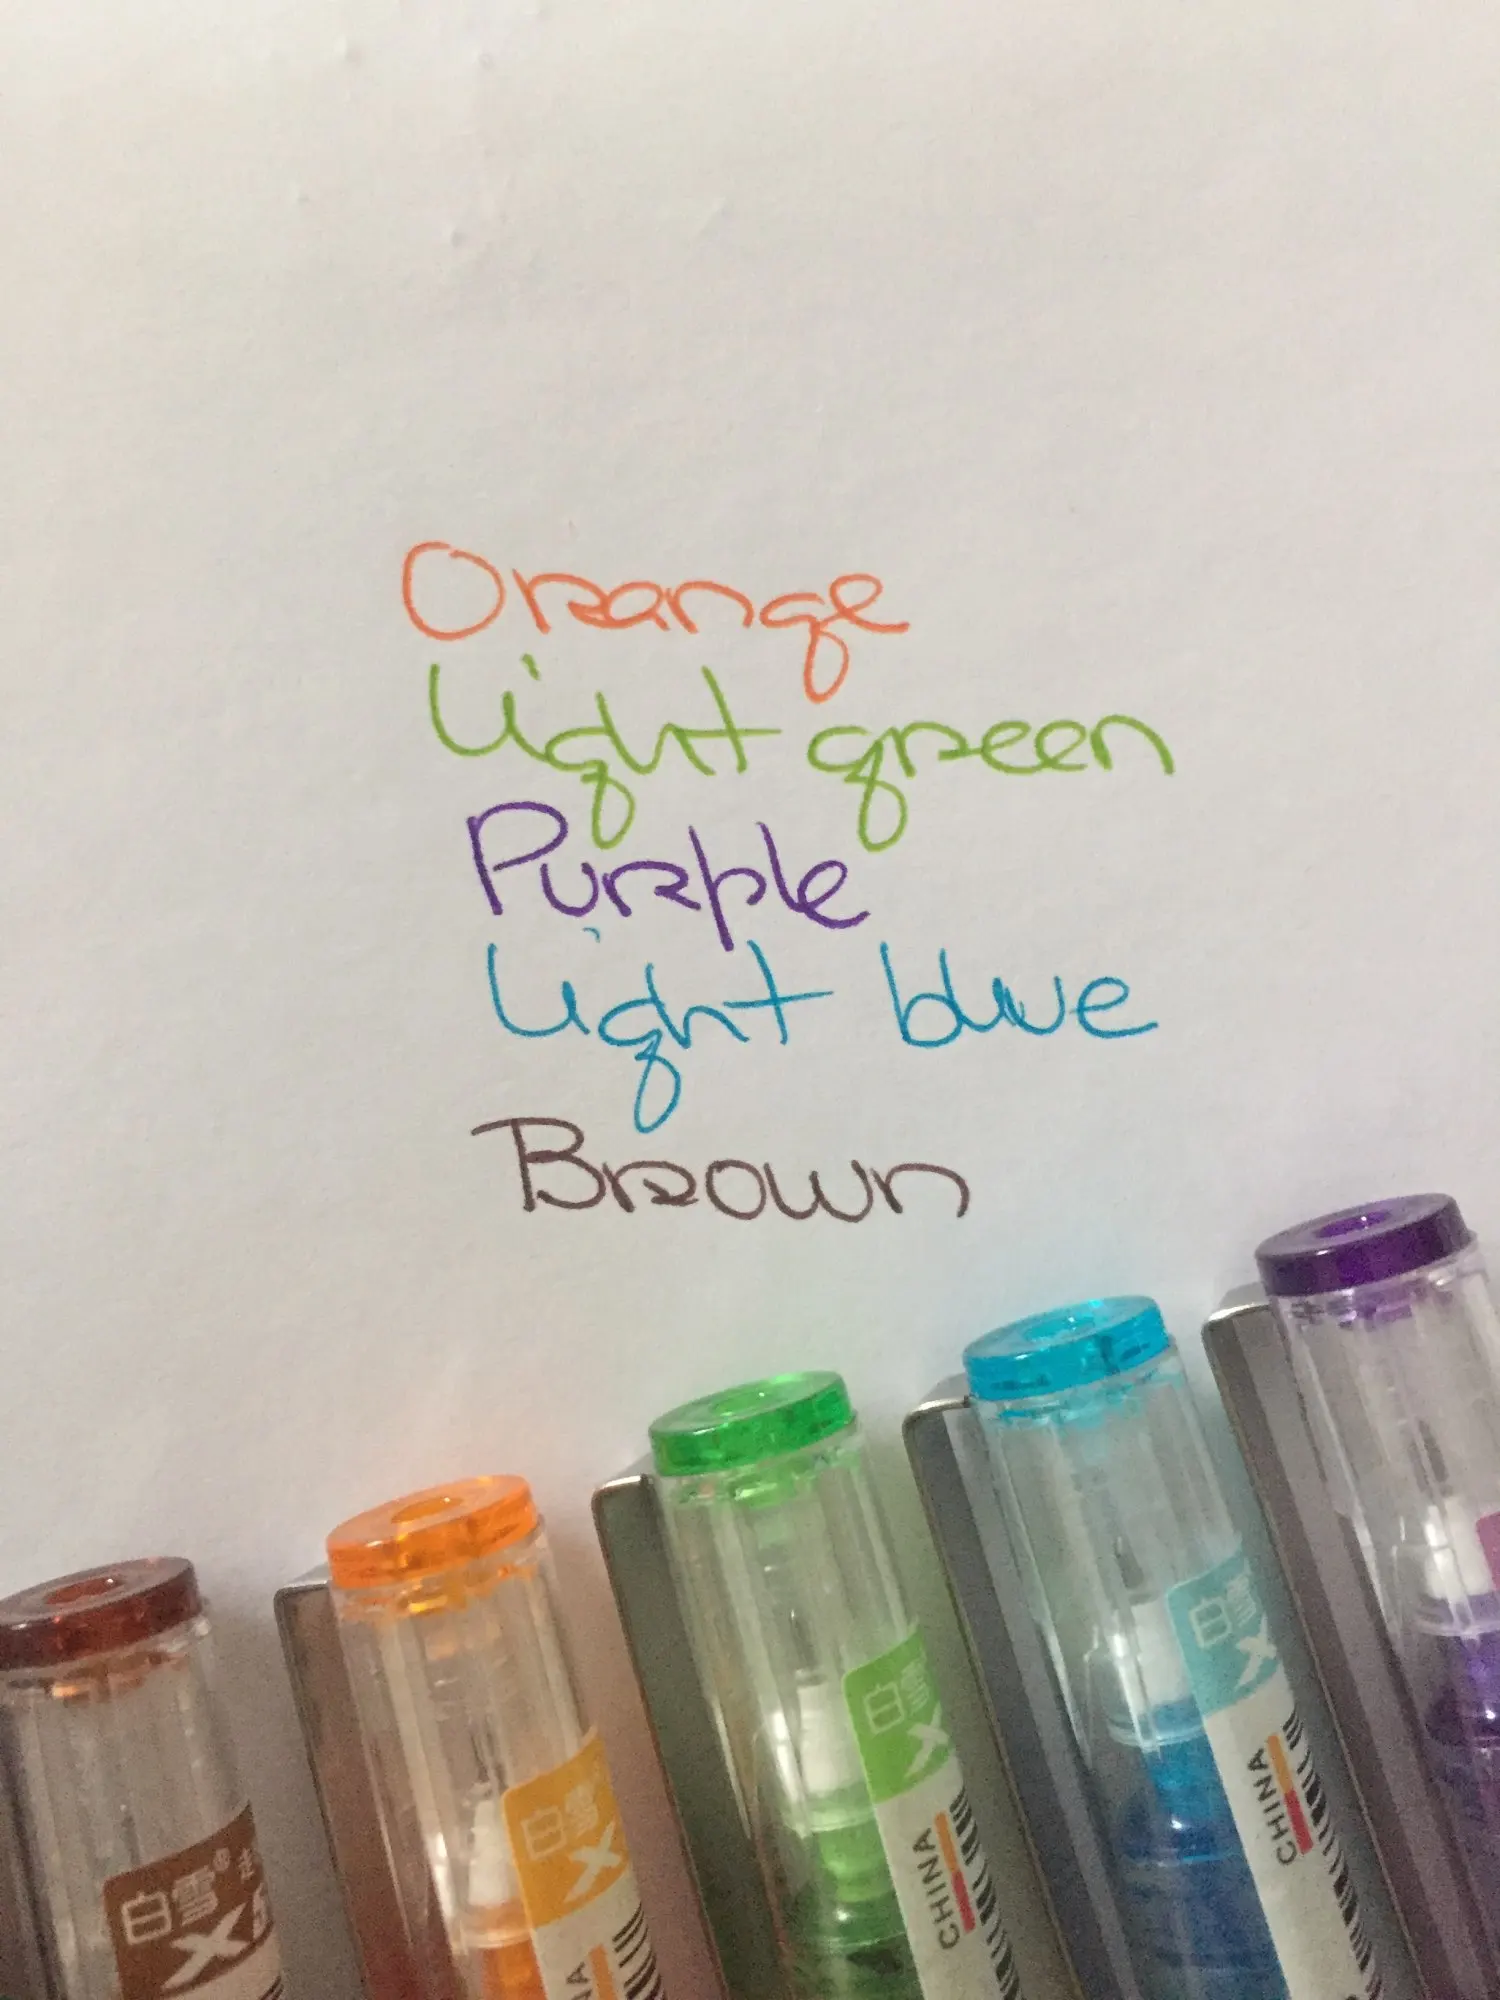 Orange
Light green
Purple
Light blue
Brown
白雪® X
白雪 X
白雪 X
CHINA
白雪 X
CHINA